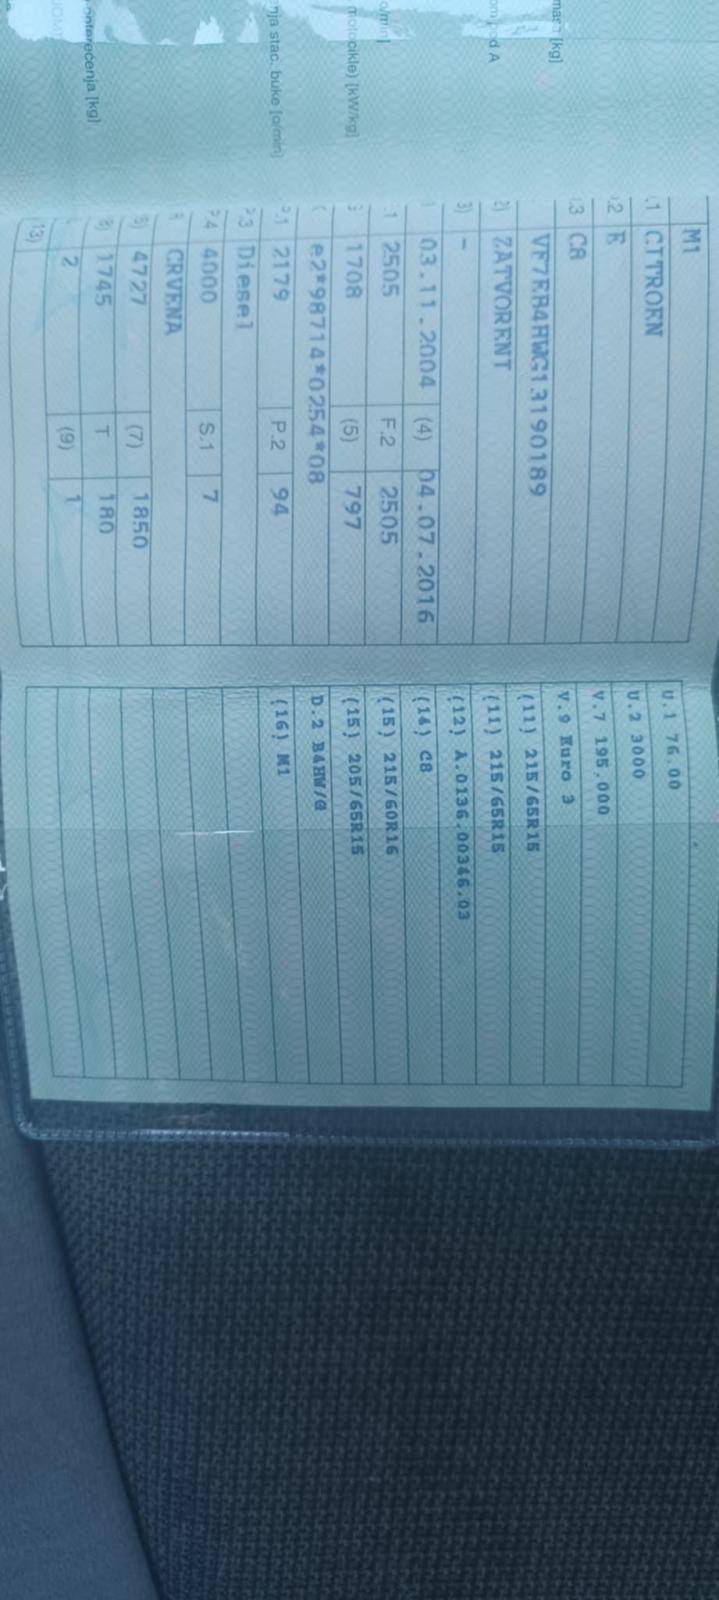 masa [kg]
o/min]
motocikle) [kW/kg]
nja stac. buke [o/min]
opterećenja [kg]
M1
.1 CITROEN
.2 E
.3 C8
VF7EB4HWG13190189
2) ZATVORENT
3) -
03.11.2004 (4) 04.07.2016
.1 2505 F.2 2505
1708 (5) 797
e2*98714*0254*08
.1 2179 P.2 94
P.3 Diesel
P.4 4000 S.1 7
CRVENA
4727 (7) 1850
1745 T 180
2 (9) 1
(13)
U.1 76.00
U.2 3000
V.7 195.000
V.9 Euro 3
(11) 215/65R15
(11) 215/65R15
(12) A.0136.00346.03
(14) C8
(15) 215/60R16
(15) 205/65R15
D.2 B4HW/G
(16) M1